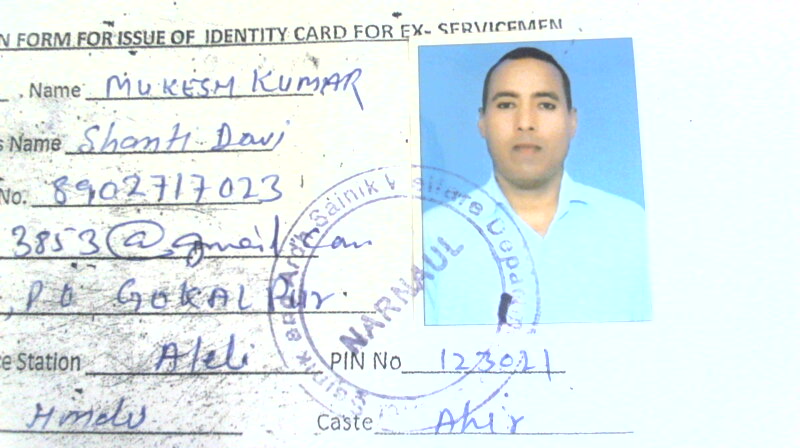 N FORM FOR ISSUE OF IDENTITY CARD FOR EX- SERVICEMEN
Name MUKESH KUMAR
s Name Shanti Davi
No. 8902717023
3853@gmail.com
, PO GOKALPUR
ce Station Ateli PIN No 123021
Hindu Caste Ahir
Sainik and Ardh Sainik Welfare Department
NARNAUL